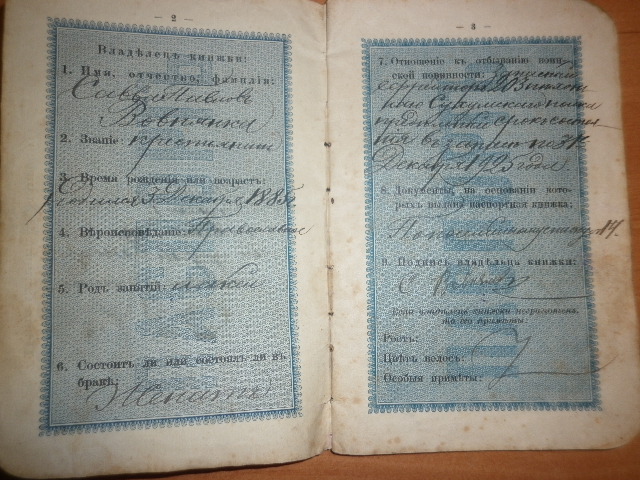 — 2 —
Владѣлецъ книжки:
1. Имя, отчество, фамилія:
Савва Павловъ
Вовнянка
2. Званіе: крестьянинъ
3. Время рожденія или возрастъ:
родился 5 Декабря 1885 г.
4. Вѣроисповѣданіе: Православное
5. Родъ занятій:
6. Состоитъ ли или состоялъ ли въ
бракѣ:
Женатъ
— 3 —
7. Отношеніе къ отбыванію воин-
ской повинности:
203 пѣхот
наго Сухумскаго полка
срокъ состоя
нія въ запасѣ по 31е
Декабря 1925 года
8. Документы, на основаніи кото-
рыхъ выдана паспортная книжка:
9. Подпись владѣльца книжки:
С
Если владѣлецъ книжки неграмотенъ,
то его примѣты:
Ростъ:
Цвѣтъ волосъ:
Особыя примѣты: